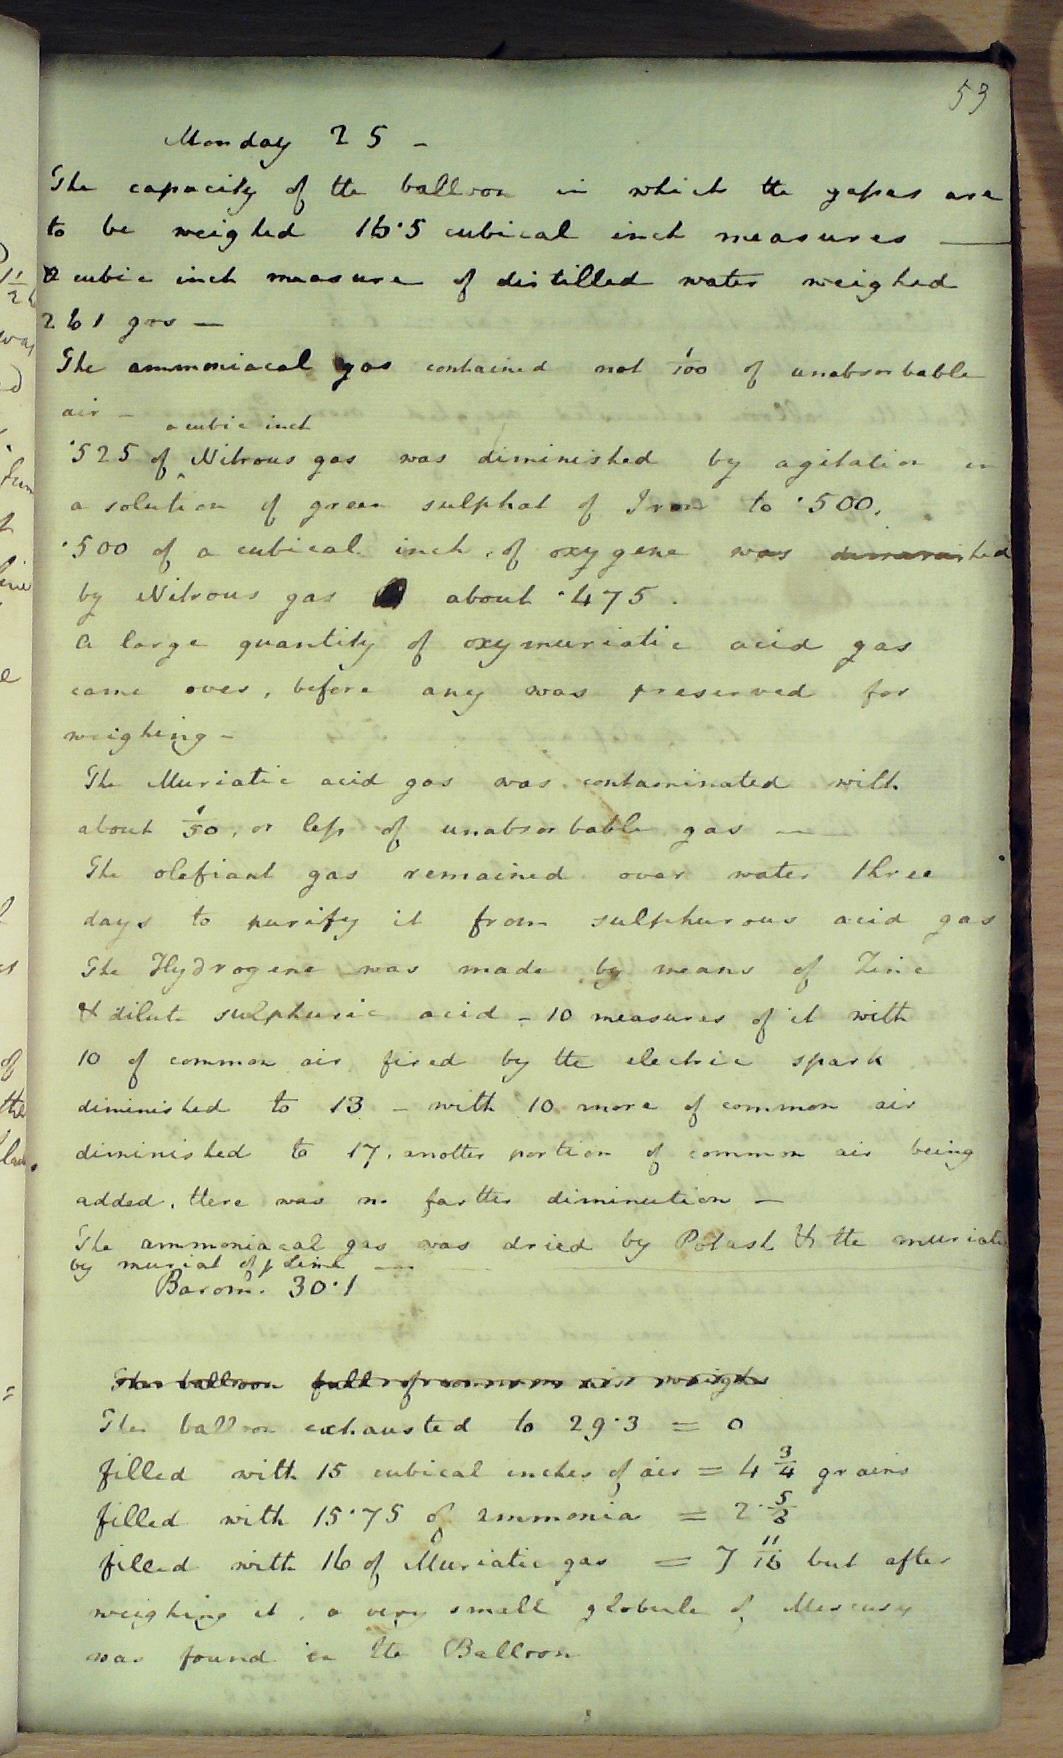 53
Monday 25 -
The capacity of the balloon in which the gases are
to be weighed 16·5 cubical inch measures —
a cubic inch measure of distilled water weighed
261 grs —
The ammoniacal gas contained not 1/100 of unabsorbable
air -
a cubic inch
·525 of Nitrous gas was diminished by agitation in
a solution of green sulphat of Iron to ·500.
·500 of a cubical inch of oxygene was diminished
by Nitrous gas about ·475.
A large quantity of oxymuriatic acid gas
came over, before any was preserved for
weighing -
The Muriatic acid gas was contaminated with
about 1/50, or less of unabsorbable gas —
The olefiant gas remained over water three
days to purify it from sulphurous acid gas
The Hydrogene was made by means of Zinc
& dilute sulphuric acid - 10 measures of it with
10 of common air fired by the electric spark
diminished to 13 - with 10 more of common air
diminished to 17. another portion of common air being
added, there was no farther diminution —
The ammoniacal gas was dried by Potash & the muriatic
by muriat of Lime —
Barom. 30·1
The balloon full of common air weighs
The balloon exhausted to 29·3 = 0
filled with 15 cubical inches of air = 4 3/4 grains
filled with 15·75 of ammonia = 2·5/8
filled with 16 of Muriatic gas = 7 11/16 but after
weighing it, a very small globule of Mercury
was found in the Balloon